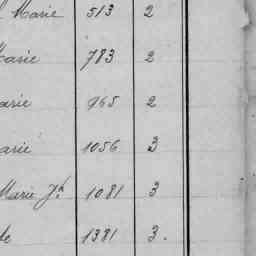 Marie 513 2
Marie 783 2
arie 965 2
arie 1056 3
Marie Jh 1081 3
de 1381 3.